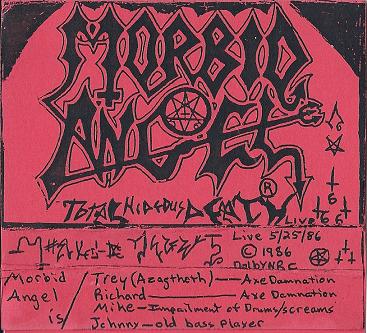 MORBID
ANGEL
Total Hideous DEATH ® Live
666
Live 5/25/86
© 1986
DolbyNR C
Morbid / Trey (Azagtheth) — Axe Damnation
Angel / Richard — Axe Damnation
is / Mike — Impailment of Drums/screams
Johnny — old bass player